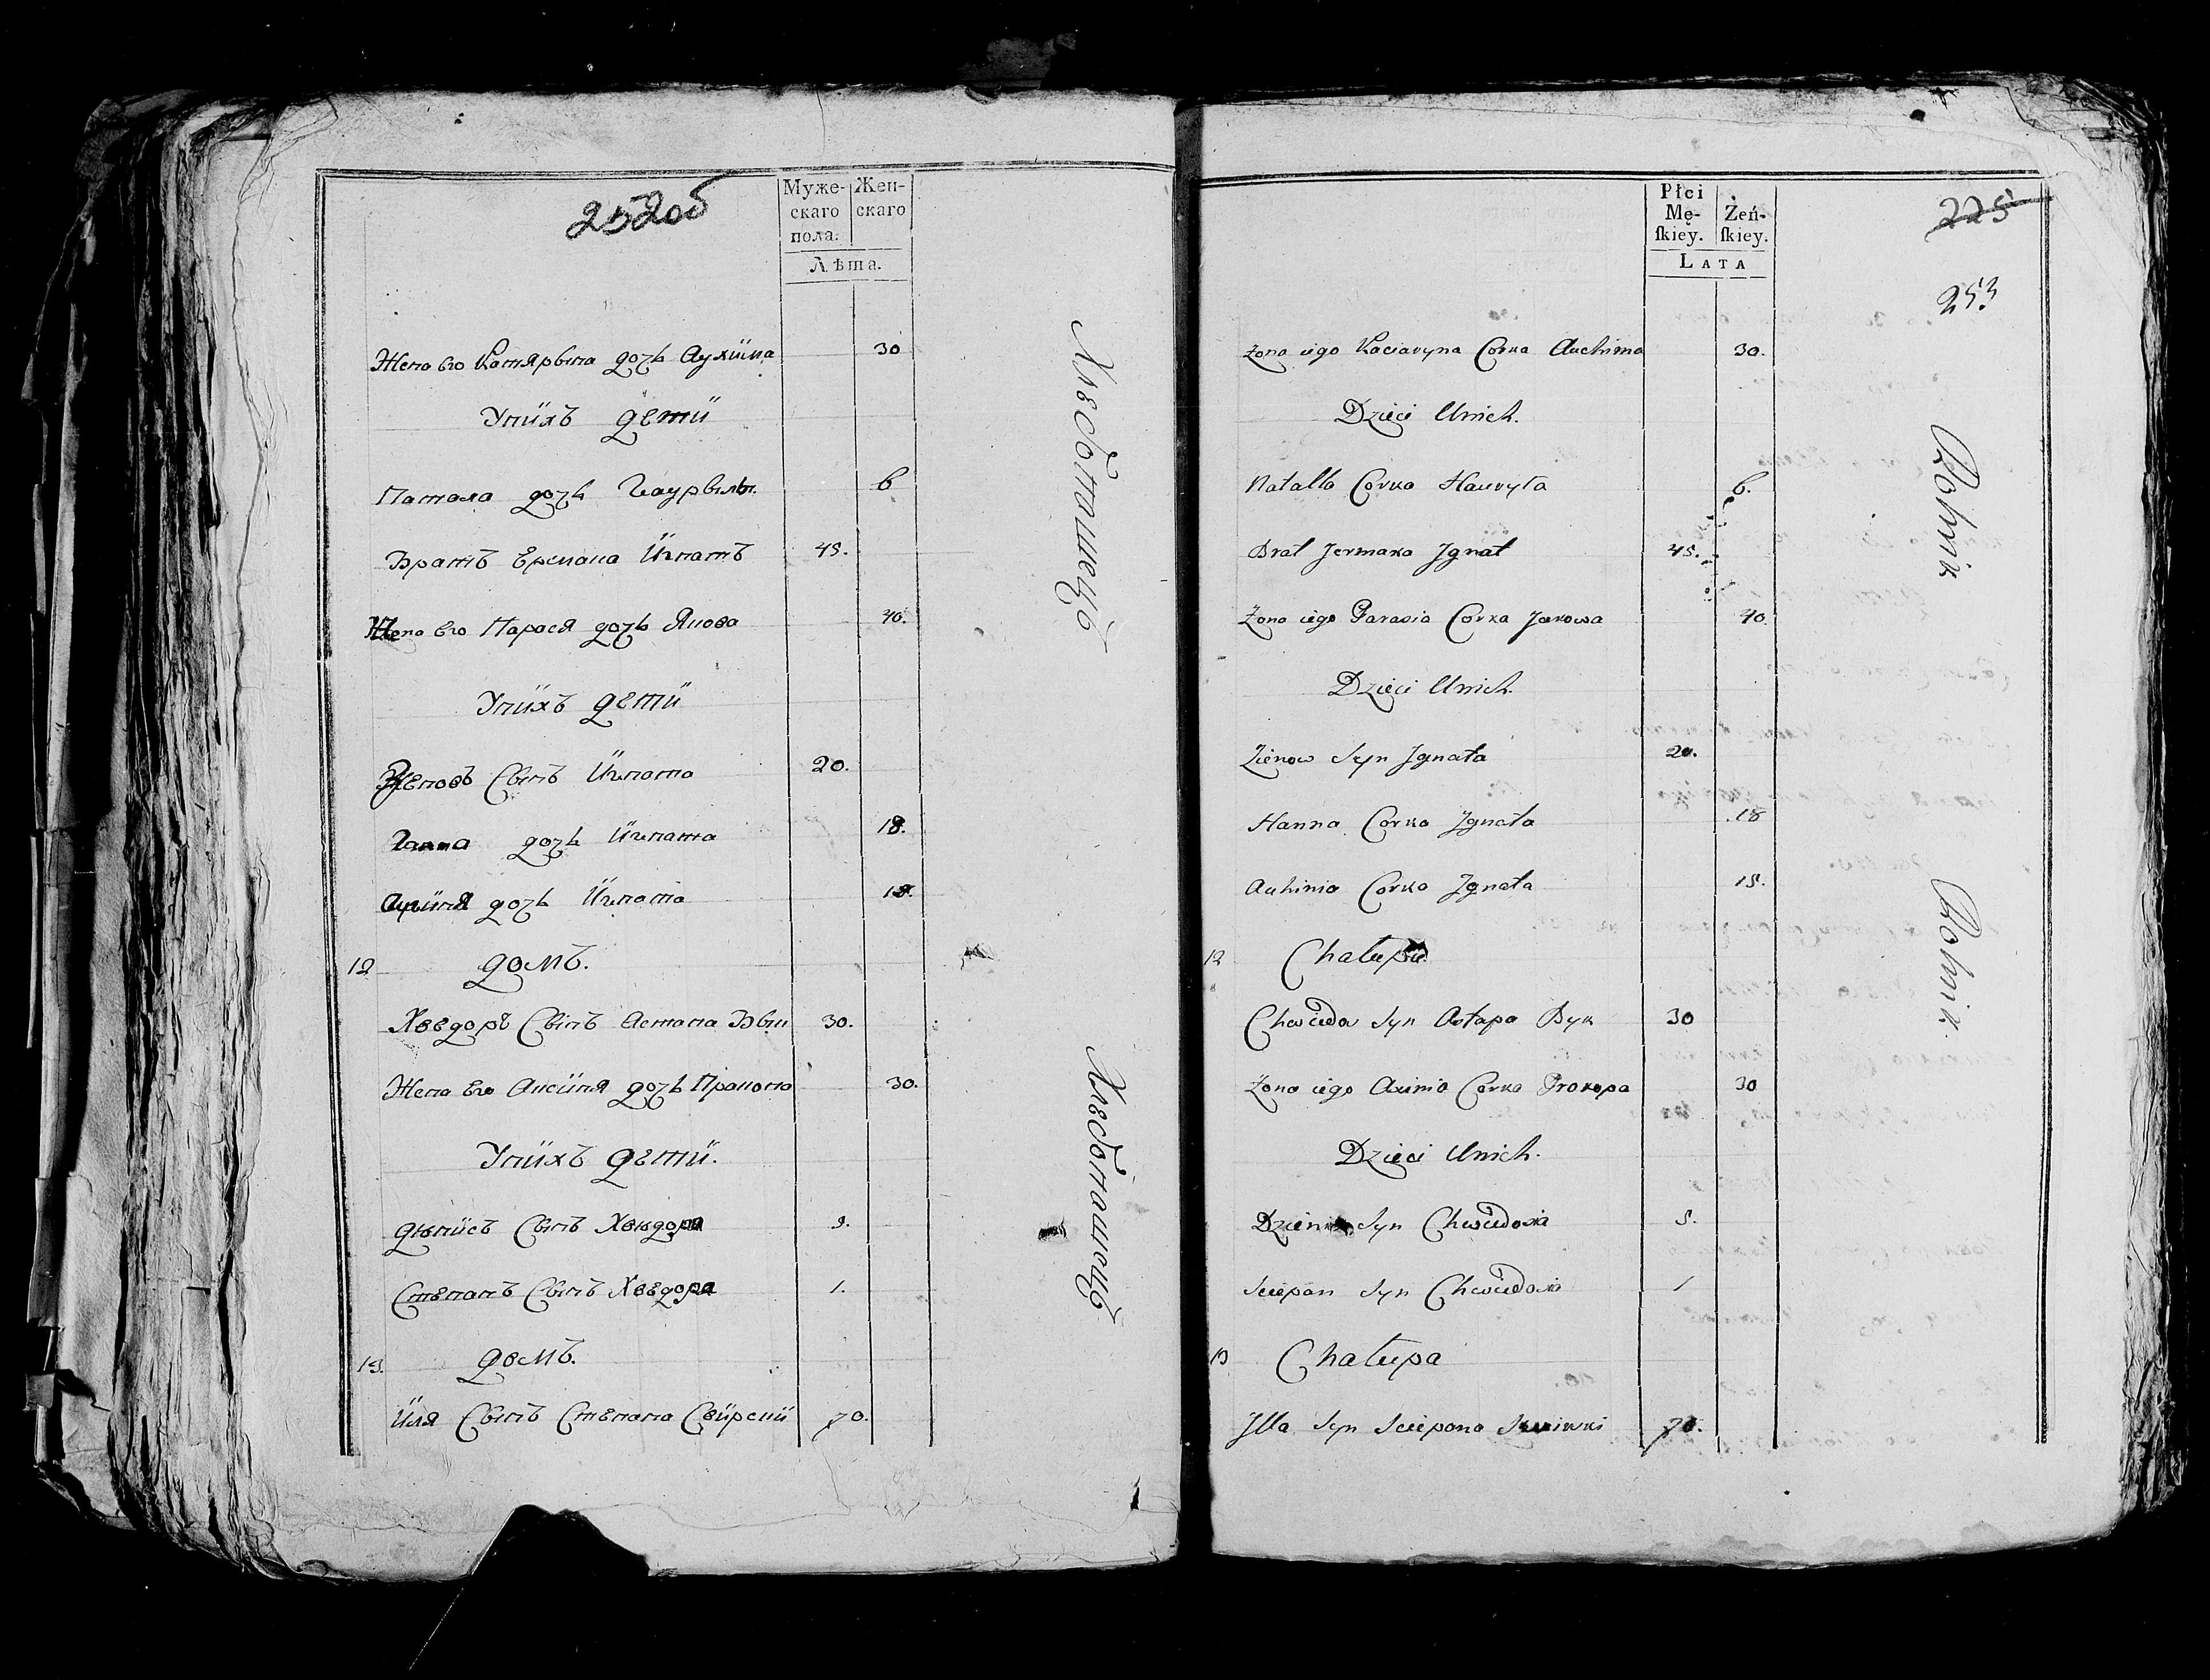 252об
Муже-
скаго
пола.
Жен-
скаго
Лѣта.
Жена его Катярына дочь Аухима 30
Унихъ дети
Натала дочь Гаурылы 6
Братъ Ермака Игнатъ 45.
Жена его Парася дочь Якова 40.
Унихъ дети
Зеновъ Сынъ Игната 20.
Ганна дочь Игната 18.
дочь Игната
12 домъ.
Хведоръ Сынъ Астапа Быкъ 30.
Жена его Аксиня дочь Пракопа 30.
Унихъ дети.
Сынъ Хведора
Степанъ Сынъ Хведора 1.
13. домъ.
Иля Сынъ Степана Свирский 70.
Хлебопашецъ
Хлебопашецъ
Płci
Mę-
ſkiey.
Żeń-
ſkiey.
LATA
225
253
Żona iego Kaciaryna Corka Auchima 30.
Dzieci Unich.
Natalla Corka Hauryła 6.
Brat Jermaka Jgnat 45.
Żona iego Parasia Corka Jakowa 40
Dzieci Unich.
Zienow Syn Jgnata 20.
Hanna Corka Jgnata 18
Auhinia Corka Jgnata 15.
12 Chałupa
Chwiedor Syn Astapa Byk 30
Żona iego Axinia Corka Prokopa 30
Dzieci Unich.
Syn Chwiedora 5.
Sciepan Syn Chwiedora 1
13 Chałupa
Jlla Syn Sciepana 70.
Rolnik
Rolnik.